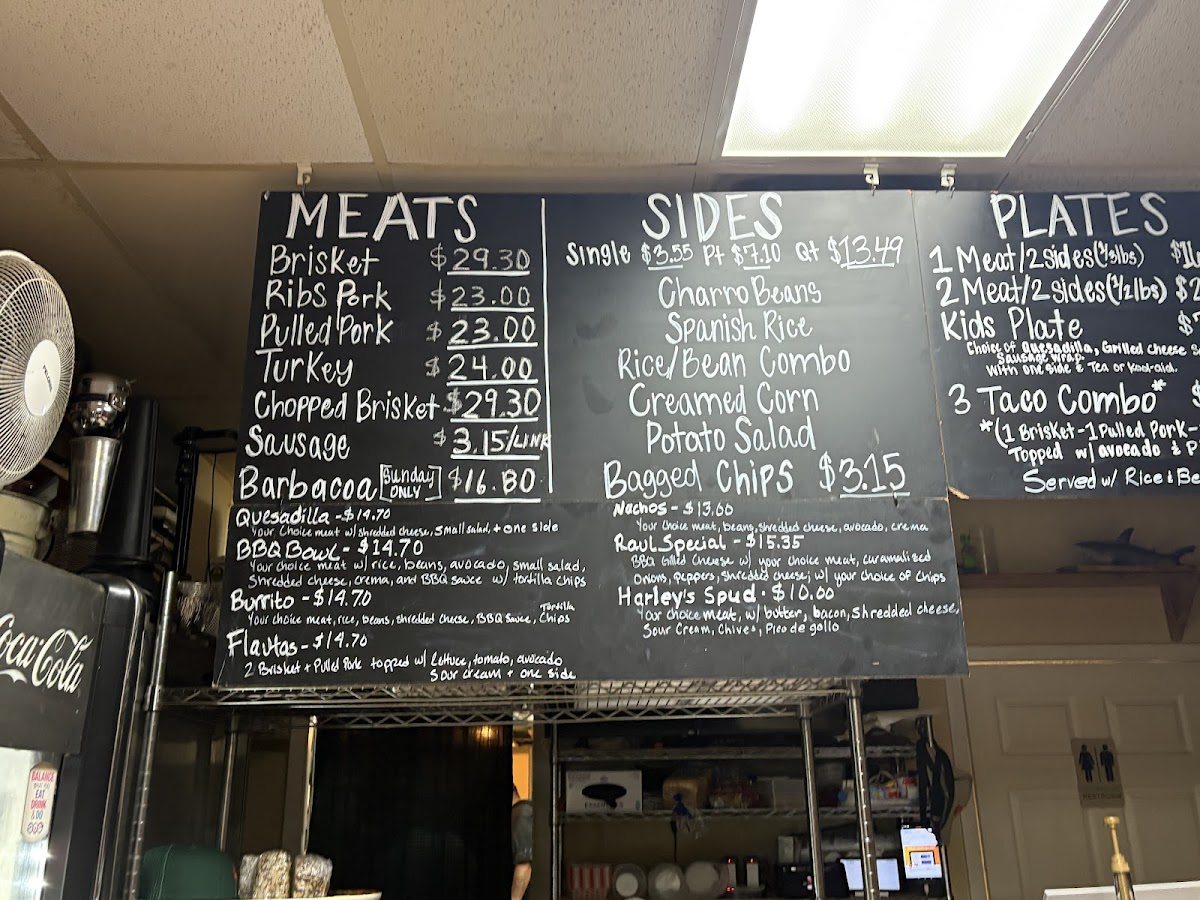 MEATS
Brisket $29.30
Ribs Pork $23.00
Pulled Pork $23.00
Turkey $24.00
Chopped Brisket $29.30
Sausage $3.15/LINK
Barbacoa [Sunday ONLY] $16.80
Quesadilla - $14.70
Your choice meat w/ shredded cheese, small salad, + one side
BBQ Bowl - $14.70
Your choice meat w/ rice, beans, avocado, small salad,
Shredded cheese, crema, and BBQ sauce w/ tortilla chips
Burrito - $14.70
Your choice meat, rice, beans, shredded cheese, BBQ Sauce, Tortilla Chips
Flautas - $14.70
2 Brisket + Pulled Pork topped w/ lettuce, tomato, avocado
sour cream + one side
SIDES
Single $3.55 Pt $7.10 Qt $13.49
Charro Beans
Spanish Rice
Rice/Bean Combo
Creamed Corn
Potato Salad
Bagged Chips $3.15
Nachos - $13.60
Your choice meat, beans, shredded cheese, avocado, crema
Raul Special - $15.35
BBQ Grilled Cheese w/ your choice meat, caramalized
onions, peppers, shredded cheese; w/ your choice of chips
Harley's Spud · $10.00
Your choice meat, w/ butter, bacon, Shredded cheese,
Sour Cream, Chives, Pico de gallo
PLATES
1 Meat/2 sides (1/3 lbs)
2 Meat/2 sides (1/2 lbs) $2
Kids Plate
Choice of Quesadilla, Grilled cheese
Sausage wrap.
With one side & Tea or Kool-aid.
3 Taco Combo*
*(1 Brisket - 1 Pulled Pork -
Topped w/ avocado &
Served w/ Rice &
Coca-Cola
BALANCE
EAT
DRINK
& DO
RESTROOM